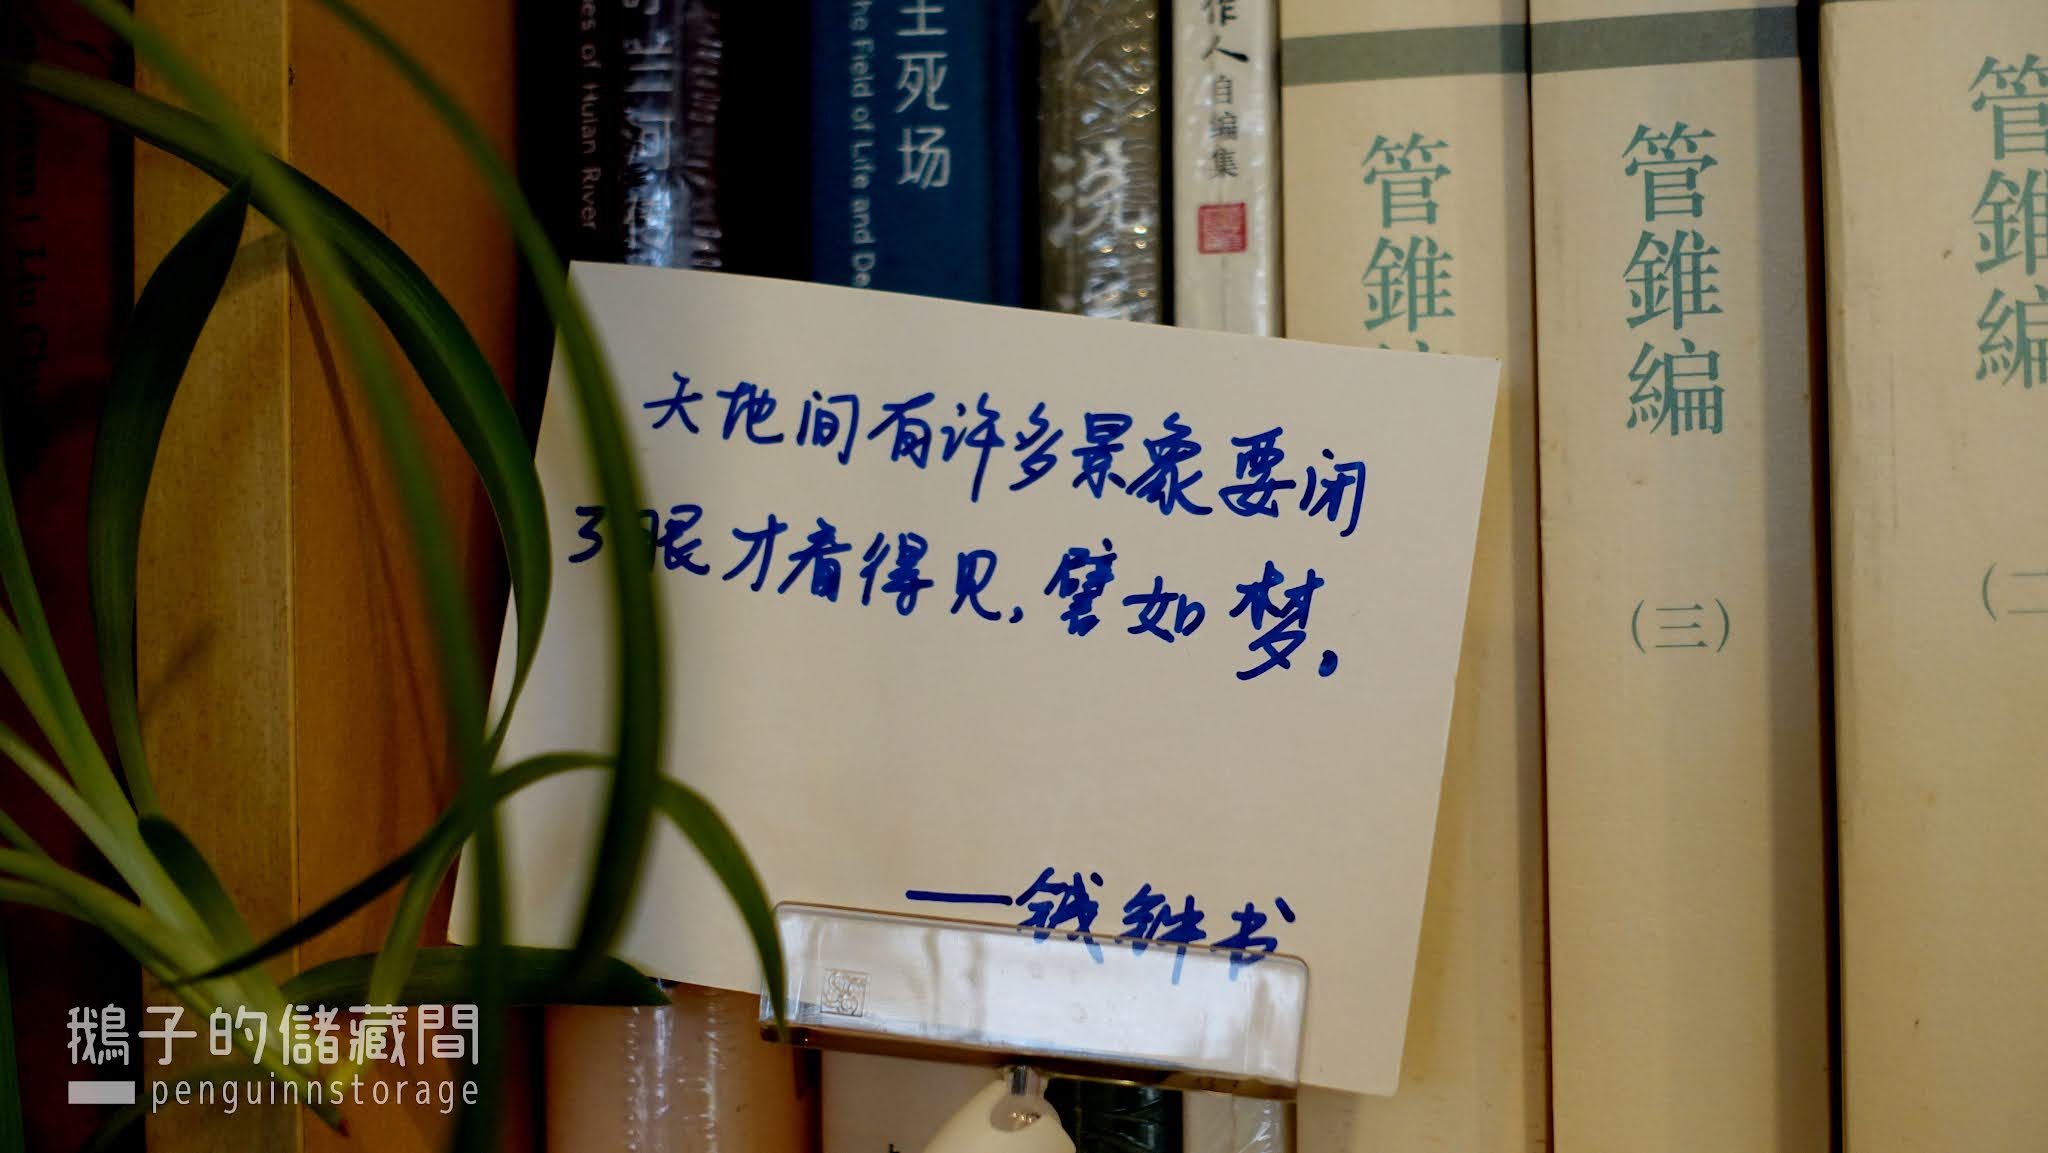 es of Huian River
兰河传
the Field of Life and De
生死场
洗
作人
自编集
管錐
管錐編
（三）
管錐編
天地间有许多景象要闭
了眼才看得见，譬如梦。
——钱钟书
鵝子的儲藏間
penguinnstorage